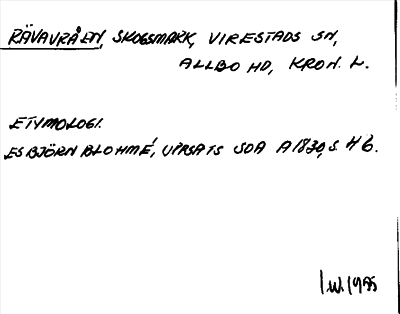 RÄVAVRÅEN, SKOGSMARK, VIRESTADS SN,
ALLBO HD, KRON. L.
ETYMOLOGI.
ESBJÖRN BLOHMÉ, UPPSATS SOA A1830, S. 46.
1955